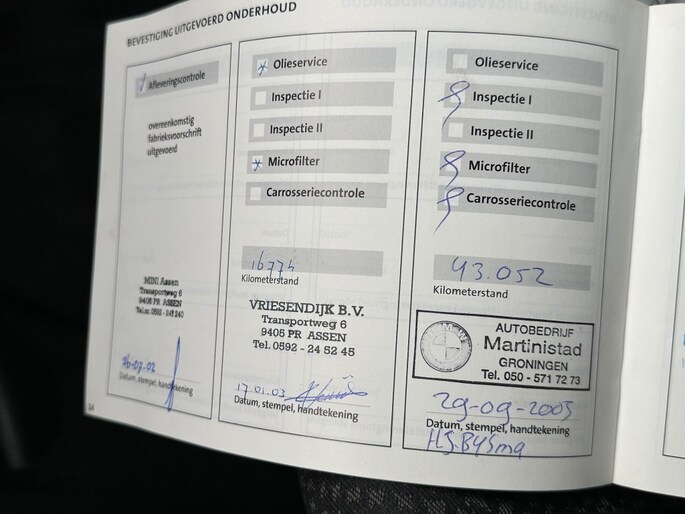 BEVESTIGING UITGEVOERD ONDERHOUD
Afleveringscontrole
overeenkomstig
fabrieksvoorschrift
uitgevoerd
MINI Assen
Transportweg 6
9405 PR ASSEN
Datum, stempel, handtekening
Olieservice
Inspectie I
Inspectie II
Microfilter
Carrosseriecontrole
Kilometerstand
VRIESENDIJK B.V.
Transportweg 6
9405 PR ASSEN
Tel. 0592 - 24 52 45
17.01.03
Datum, stempel, handtekening
Olieservice
Inspectie I
Inspectie II
Microfilter
Carrosseriecontrole
43.052
Kilometerstand
AUTOBEDRIJF
Martinistad
GRONINGEN
Tel. 050 - 571 72 73
29-09-2005
Datum, stempel, handtekening